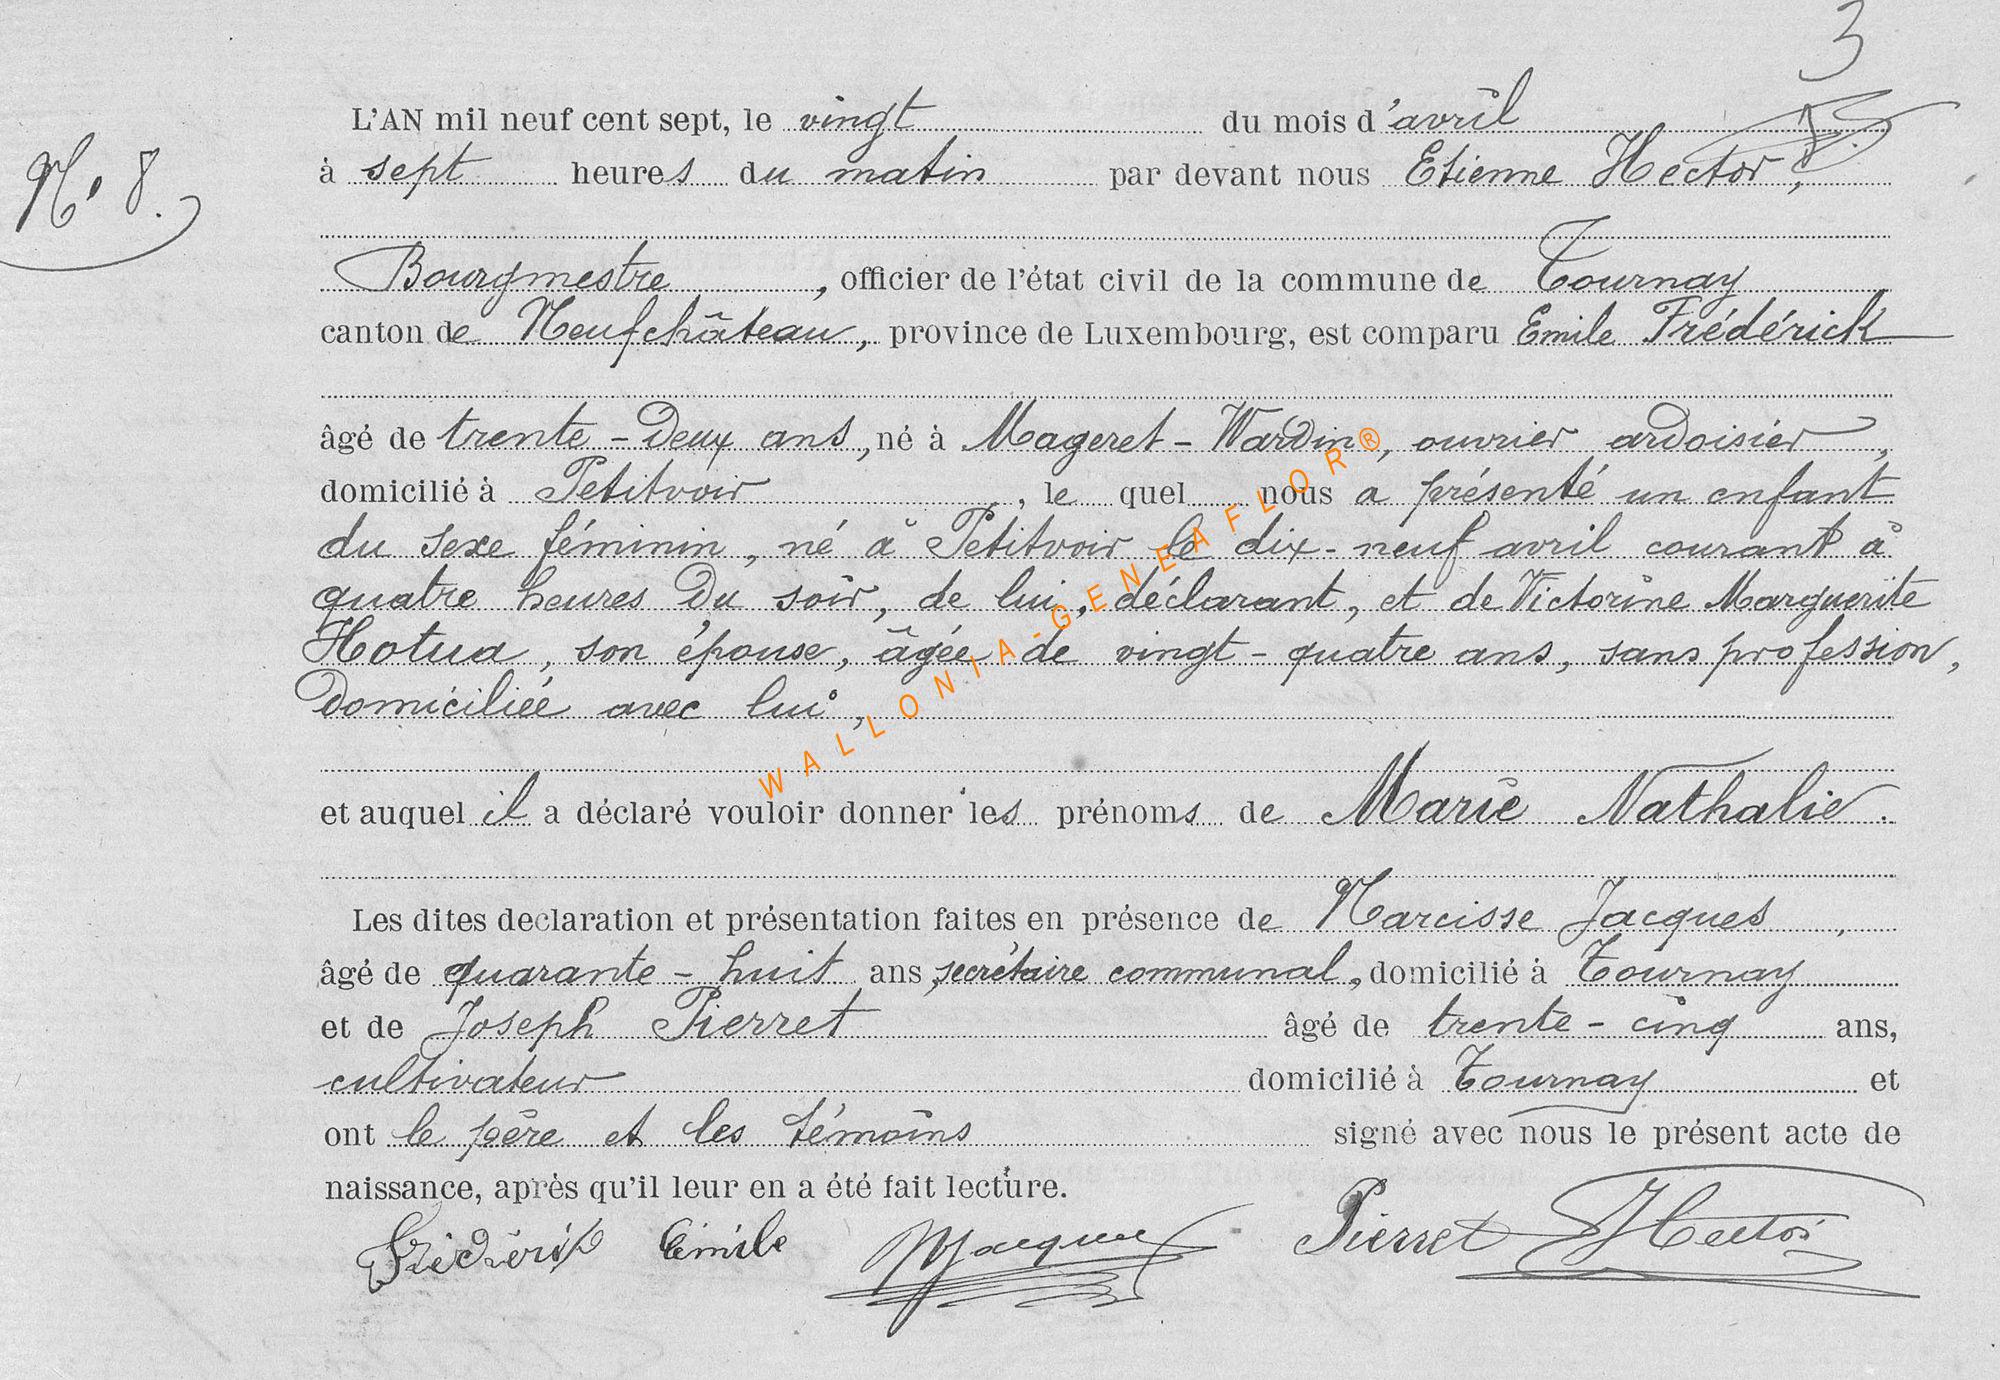 3
N° 8.
L'AN mil neuf cent sept, le vingt du mois d'avril
à sept heures du matin par devant nous Etienne Hector,
Bourgmestre, officier de l'état civil de la commune de Tournay
canton de Neufchâteau, province de Luxembourg, est comparu Emile Frédérick
âgé de trente-deux ans, né à Mageret-Wardin, ouvrier ardoisier,
domicilié à Petitvoir, le quel nous a présenté un enfant
du sexe féminin, né à Petitvoir le dix-neuf avril courant à
quatre heures du soir, de lui, déclarant, et de Victorine Marguerite
Hotua, son épouse, âgée de vingt-quatre ans, sans profession,
domiciliée avec lui,
WALLONIA-GENEAFLOR®
et auquel il a déclaré vouloir donner les prénoms de Marie Nathalie.
Les dites declaration et présentation faites en présence de Narcisse Jacques,
âgé de quarante-huit ans, secrétaire communal, domicilié à Tournay
et de Joseph Pierret âgé de trente-cinq ans,
cultivateur domicilié à Tournay et
ont le père et les témoins signé avec nous le présent acte de
naissance, après qu'il leur en a été fait lecture.
Frédérik Emile NJacques Pierret Hector